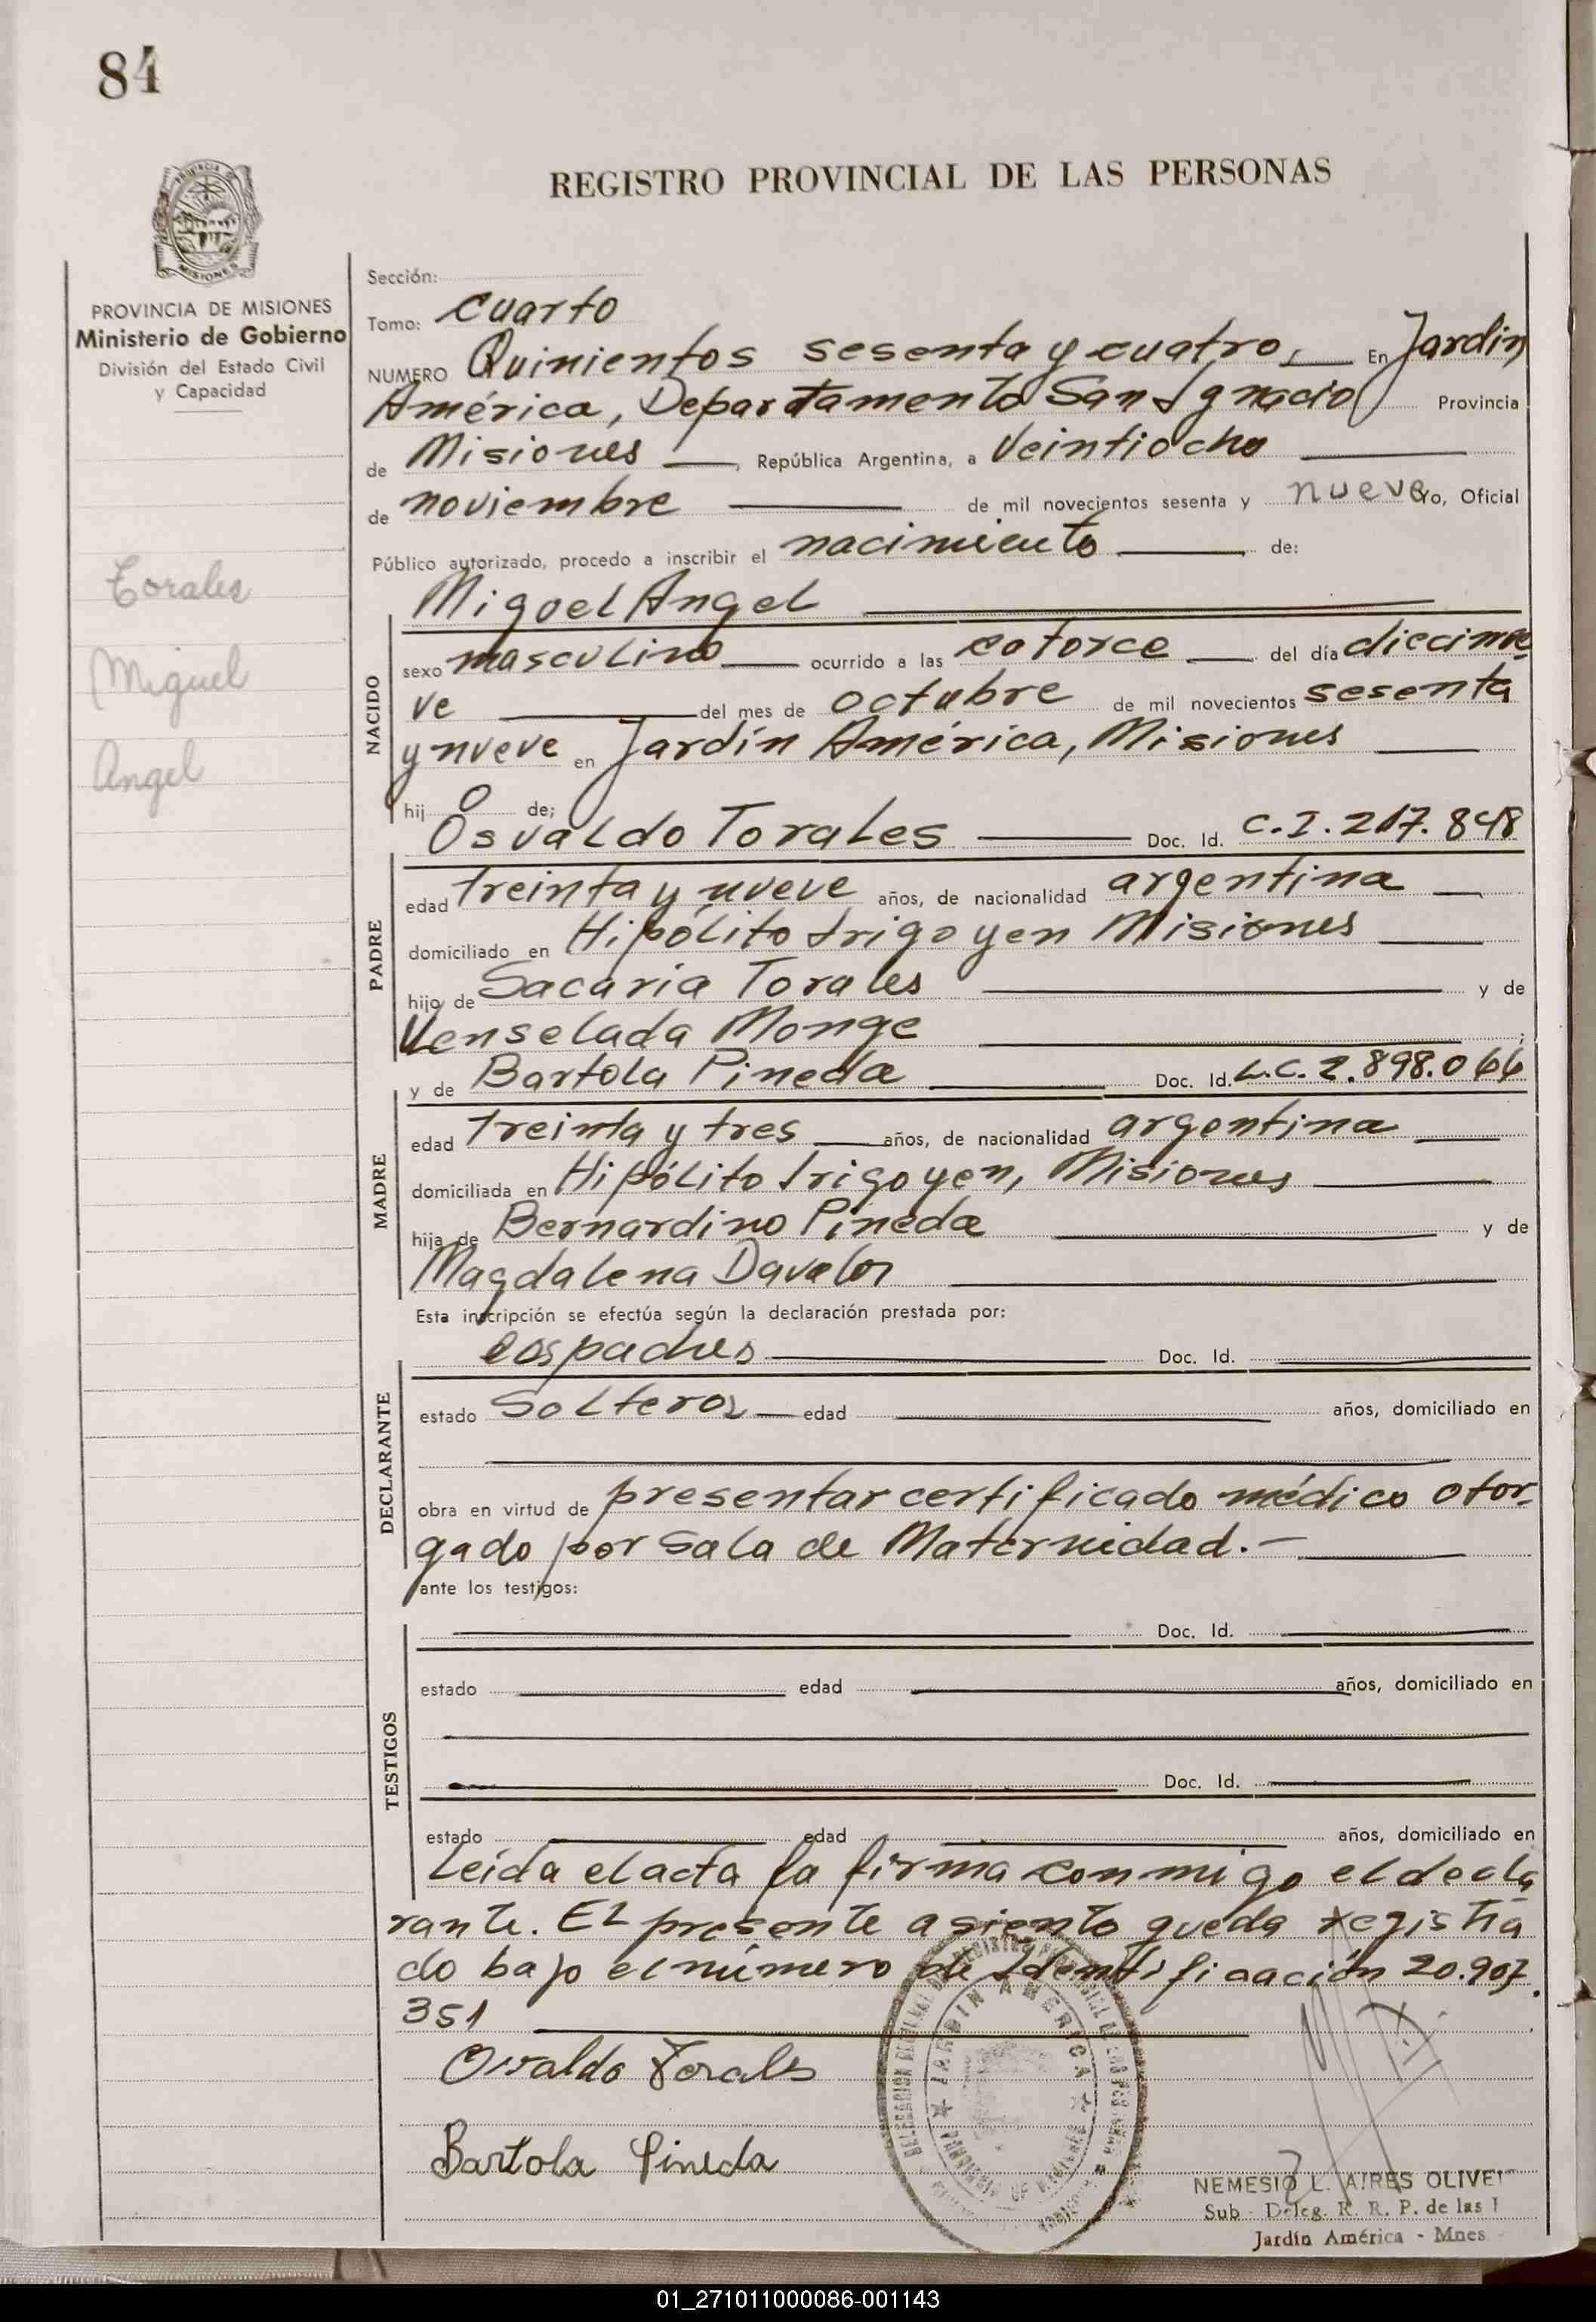 84
REGISTRO PROVINCIAL DE LAS PERSONAS
PROVINCIA DE MISIONES
Ministerio de Gobierno
División del Estado Civil
y Capacidad
Torales
Miguel
Angel
Sección:
Tomo: Cuarto
NUMERO Quinientos sesenta y cuatro, En Jardin
América, Departamento San Ignacio Provincia
de Misiones, República Argentina, a Veintiocho
de noviembre de mil novecientos sesenta y nueve yo, Oficial
Público autorizado, procedo a inscribir el nacimiento de:
Miguel Angel
NACIDO
sexo masculino ocurrido a las catorce del día diecinue-
ve del mes de octubre de mil novecientos sesenta
y nueve en Jardín América, Misiones
hijo de;
Osvaldo Torales Doc. Id. C.I. 217.848
PADRE
edad treinta y nueve años, de nacionalidad argentina
domiciliado en Hipólito Irigoyen Misiones
hijo de Sacaria Torales y de
Venselada Monge ;
y de Bartola Pineda Doc. Id. L.C. 2.898.066
MADRE
edad treinta y tres años, de nacionalidad argentina
domiciliada en Hipólito Irigoyen, Misiones
hija de Bernardino Pineda y de
Magdalena Davalos
Esta inscripción se efectúa según la declaración prestada por:
los padres Doc. Id.
DECLARANTE
estado Solteros edad años, domiciliado en
obra en virtud de presentar certificado médico otor-
gado por Sala de Maternidad.-
ante los testigos:
TESTIGOS
Doc. Id.
estado edad años, domiciliado en
Doc. Id.
estado edad años, domiciliado en
Leída el acta la firma conmigo el decla
rante. El presente asiento queda registra
do bajo el número de Identificación 20.907.
351
Osvaldo Torales
Bartola Pineda
JARDIN AMERICA
NEMESIO L. AIRES OLIVEI
Sub - Deleg. R. R. P. de las
Jardín América - Mnes
01_271011000086-001143